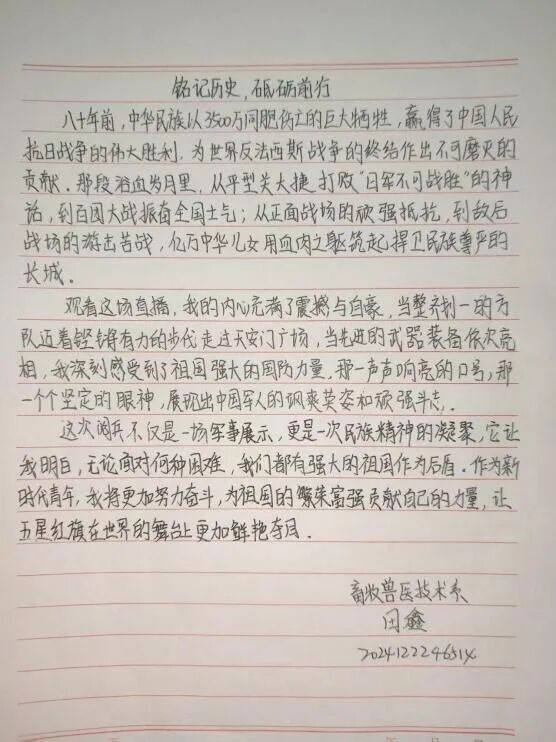 铭记历史，砥砺前行
八十年前，中华民族以3500万同胞伤亡的巨大牺牲，赢得了中国人民
抗日战争的伟大胜利，为世界反法西斯战争的终结作出不可磨灭的
贡献。那段浴血岁月里，从平型关大捷打败“日军不可战胜”的神
话，到百团大战振奋全国士气；从正面战场的顽强抵抗，到敌后
战场的游击苦战，亿万中华儿女用血肉之躯筑起捍卫民族尊严的
长城。
观看这场直播，我的内心充满了震撼与自豪，当整齐划一的方
队迈着铿锵有力的步伐走过天安门广场，当先进的武器装备依次亮
相，我深刻感受到了祖国强大的国防力量。那一声声响亮的口号，那
一个个坚定的眼神，展现出中国军人的飒爽英姿和顽强斗志。
这次阅兵不仅是一场军事展示，更是一次民族精神的凝聚，它让
我明白，无论面对何种困难，我们都有强大的祖国作为后盾。作为新
时代青年，我将更加努力奋斗，为祖国的繁荣富强贡献自己的力量，让
五星红旗在世界的舞台上更加鲜艳夺目。
畜牧兽医技术系
田鑫
2024122246514